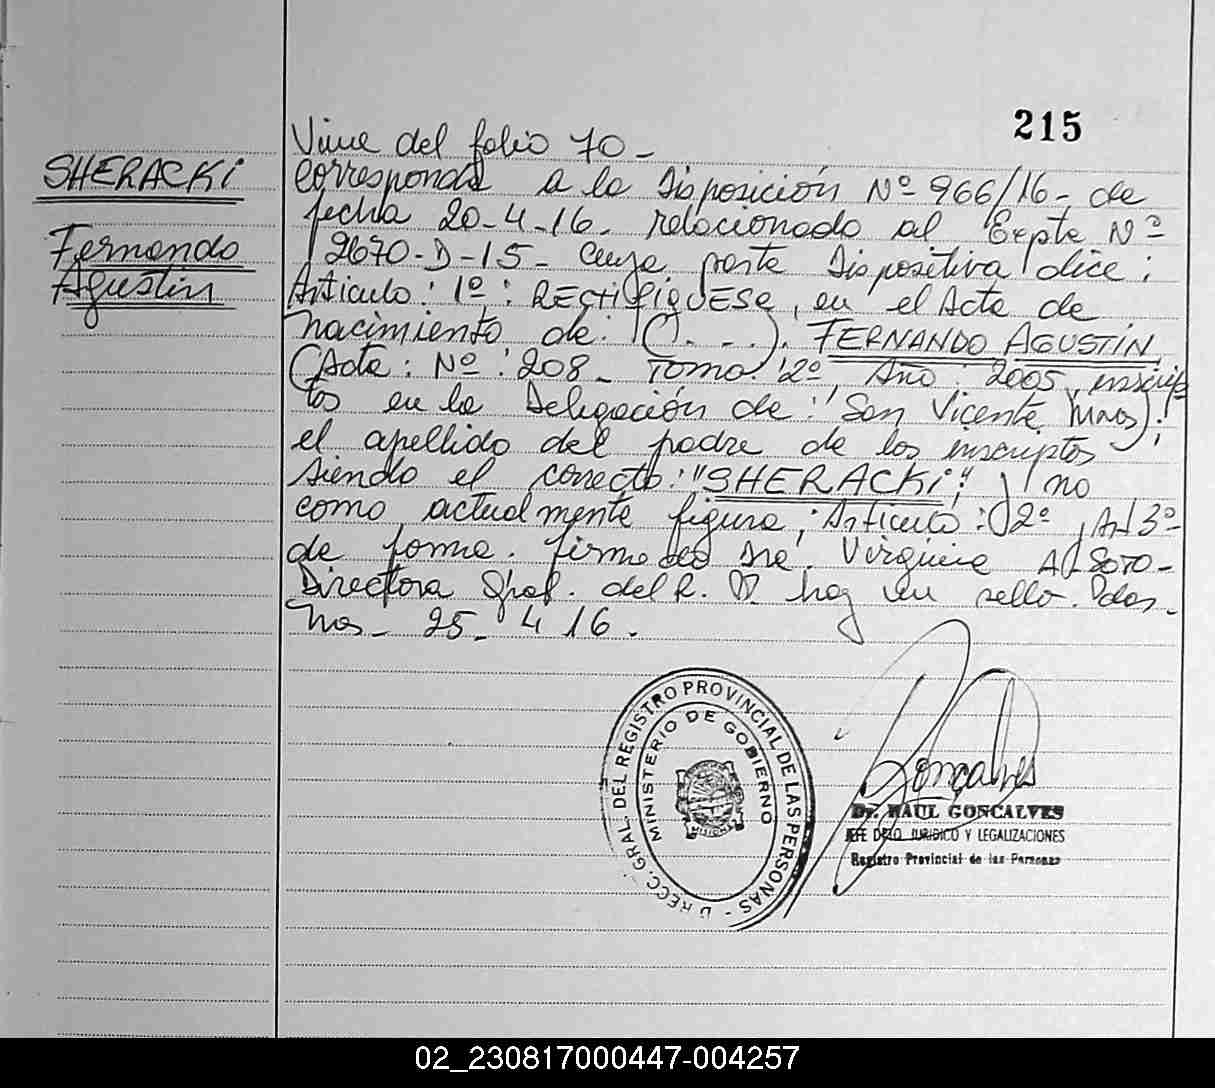 215
SHERACKi
Fernando
Agustin
Viene del folio 70-
Corresponde a la Disposición Nº 966/16- de
fecha 20-4-16- relacionado al Expte Nº
2670-D-15- cuya parte Dispositiva dice:
Articulo: 1º: RECTIFIQUESE, en el Acta de
nacimiento de: (. . .). FERNANDO AGUSTIN
(Acta: Nº: 208- Tomo: 2º, Año: 2005, inscrip
tos en la Delegación de: San Vicente Mnes):
el apellido del padre de los inscriptos
siendo el correcto: "SHERACKi" y no
como actualmente figura; Articulo: 2º, Art 3º-
de forma. firmado Dra. Virginia A. SOTO-
Directora Gral. del R. P. hay un sello. Pdas-
Mnes- 25- 4 16.
DIRECC. GRAL. DEL REGISTRO PROVINCIAL DE LAS PERSONAS -
MINISTERIO DE GOBIERNO
MISIONES
Goncalves
Dr. RAUL GONCALVES
JEFE DPTO. JURIDICO Y LEGALIZACIONES
Registro Provincial de las Personas
02_230817000447-004257